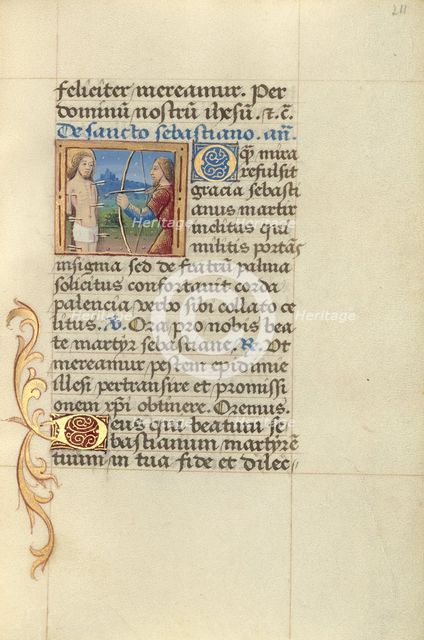 211
feliciter mereamur. Per
dominū nostrū ihesū. ⁊.c̄.
De sancto sebastiano. añ.
O q̄ mira
refulsit
gracia sebasti
anus martir
inclitus qui
militis portās
insignia sed de fratrū palma
solicitus confortauit corda
palencia verbo sibi collato ce
litus. V. Ora pro nobis bea
te martyr sebastiane. R. Vt
mereamur pestem epidimie
illesi pertransire et promissi
onem xp̄i obtinere. Oremus.
Deus qui beatum se
bastianum martyrē
tuum in tua fide et dilec
Heritage
Heritage
Heritage
Heritage
Heritage
Heritage